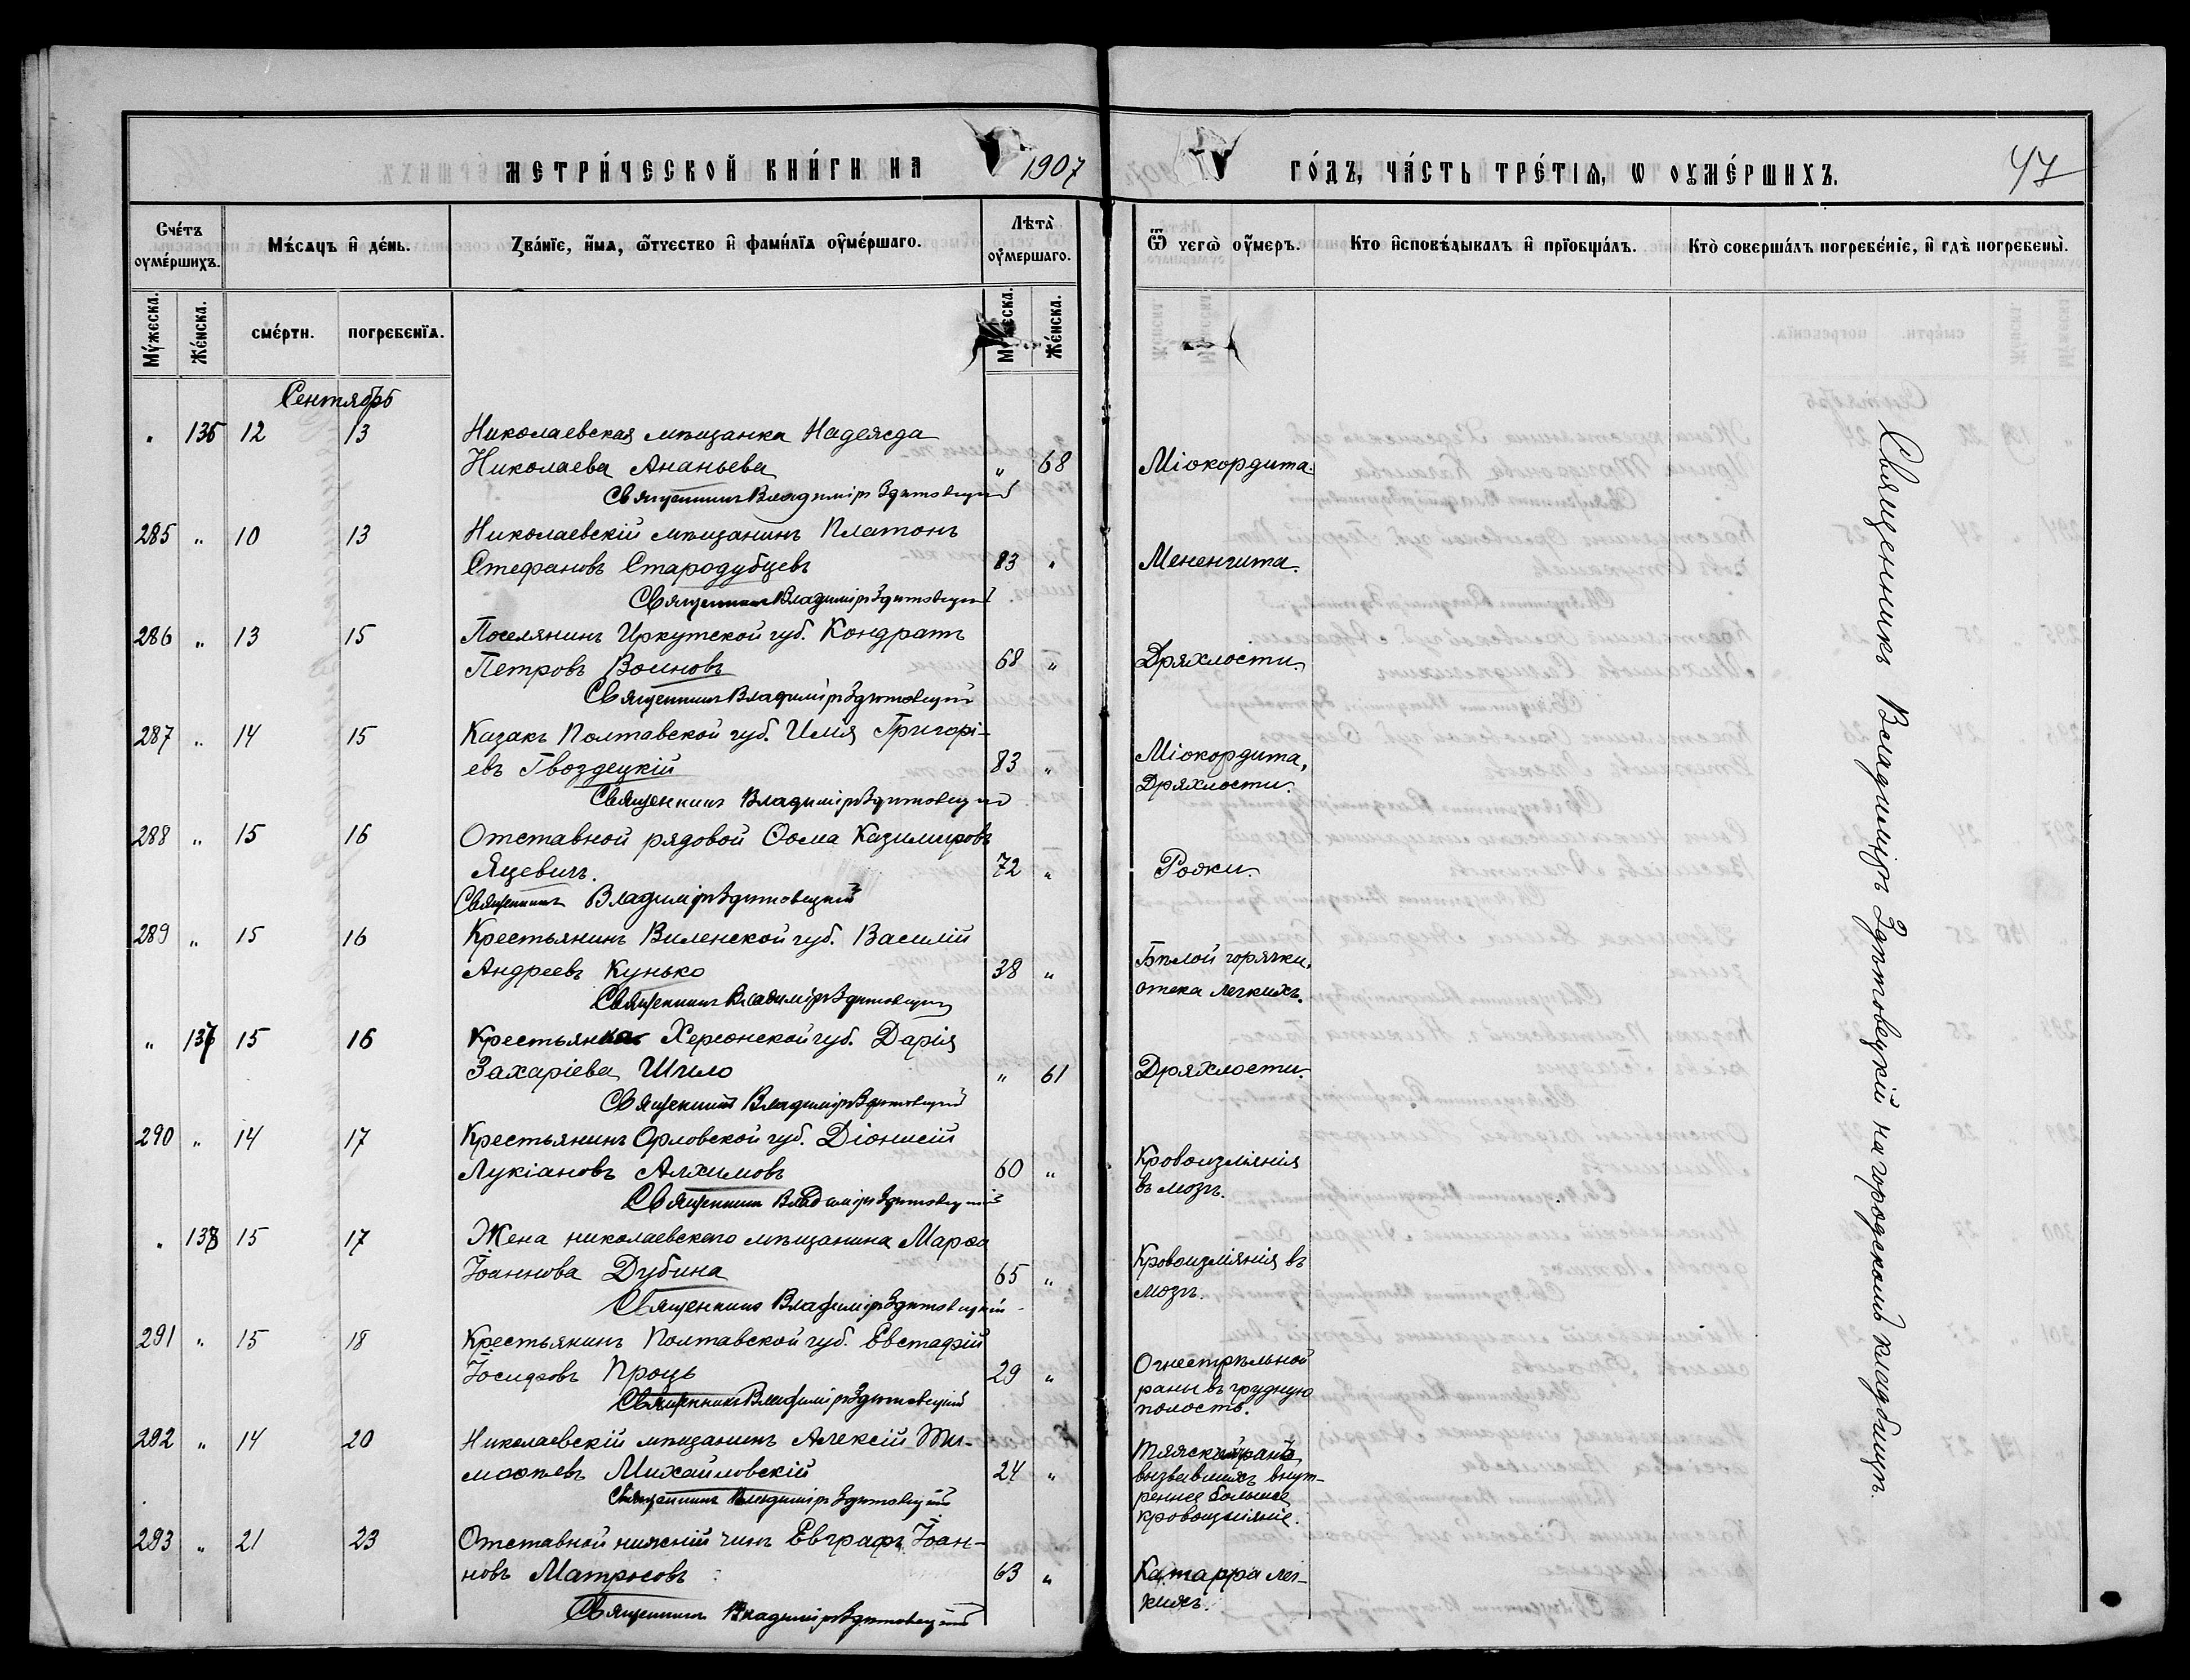 МЕТРИ́ЧЕСКОЙ КНИ́ГИ НА 1907 ГО́ДЪ, ЧА́СТЬ ТРЕ́ТІѦ, Ѡ ОУМЕ́РШИХЪ.
47
Сче́тъ оуме́ршихъ.
Мѣ́сѧцъ и҆ де́нь.
Зва́нїе, и҆́мѧ, ѻ҆́тчество и҆ фами́лїѧ оу҆ме́ршаго.
Лѣта̀ оу҆́мершаго.
Ѿ чегѡ̀ оу҆́меръ.
Кто и҆сповѣ́дывалъ и҆ прїѡбща́лъ.
Кто̀ соверша́лъ погребе́нїе, и҆ гдѣ̀ погребены̀.
Мꙋ́жеска.
Же́нска.
сме́рти.
погребенїѧ.
Мꙋ́жеска.
Же́нска.
Сентябрь
" 136 12 13 Николаевская мѣщанка Надежда
Николаева Ананьева " 68 Міокордита.
Священникъ Владиміръ Здѣтовецкій
285 " 10 13 Николаевскій мѣщанинъ Платонъ
Стефановъ Стародубцевъ 83 " Мененгита.
Священникъ Владиміръ Здѣтовецкій
286 " 13 15 Поселянинъ Иркутской губ. Кондратъ
Петровъ Воиновъ 68 " Дряхлости.
Священникъ Владиміръ Здѣтовецкій
287 " 14 15 Казакъ Полтавской губ. Илія Григорі-
евъ Гвоздецкій 83 " Міокордита,
Дряхлости.
Священникъ Владиміръ Здѣтовецкій
288 " 15 16 Отставной рядовой Ѳома Казимировъ
Яцевичъ. 72 " Рожи.
Священникъ Владиміръ Здѣтовецкій
289 " 15 16 Крестьянинъ Виленской губ. Василій
Андреевъ Кунько 38 " Бѣлой горячки,
отека легкихъ.
Священникъ Владиміръ Здѣтовецкій
" 137 15 16 Крестьянка Херсонской губ. Дарія
Захаріева Шило " 61 Дряхлости.
Священникъ Владиміръ Здѣтовецкій
290 " 14 17 Крестьянинъ Орловской губ. Діонисій
Лукіановъ Алхимовъ 60 " Кровоизліянія
въ мозгъ.
Священникъ Владиміръ Здѣтовецкій
" 138 15 17 Жена николаевскаго мѣщанина Марѳа
Іоаннова Дубина 65 " Кровоизліянія въ
мозгъ.
Священникъ Владиміръ Здѣтовецкій
291 " 15 18 Крестьянинъ Полтавской губ. Евстафій
Іосифовъ Проць 29 " Огнестрѣльной
раны въ грудную
полость.
Священникъ Владиміръ Здѣтовецкій
292 " 14 20 Николаевскій мѣщанинъ Алексій Ти-
моѳеевъ Михайловскій 24 "
вызвавшихъ внут-
реннее большое
кровоизліяніе.
Священникъ Владиміръ Здѣтовецкій
293 " 21 23 Отставной нижній чинъ Евграфъ Іоан-
новъ Матросовъ 63 " Катарра лег-
кихъ.
Священникъ Владиміръ Здѣтовецкій
Священникъ Владиміръ Здѣтовецкій на городскомъ кладбищѣ.